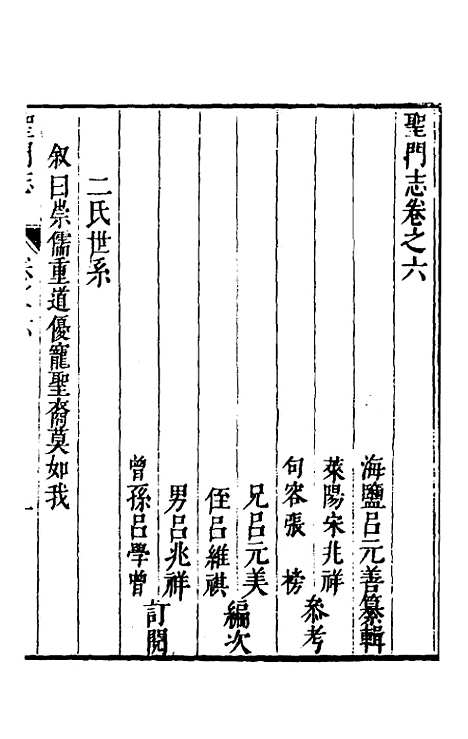 聖門志卷之六
海鹽呂元善纂輯
萊陽宋兆祥
句容張榜
參考
兄呂元美
侄呂維祺
編次
男呂兆祥
曾孫呂學曾
訂閱
二氏世系
叙曰崇儒重道優寵聖裔莫如我
聖門志
卷之六
一